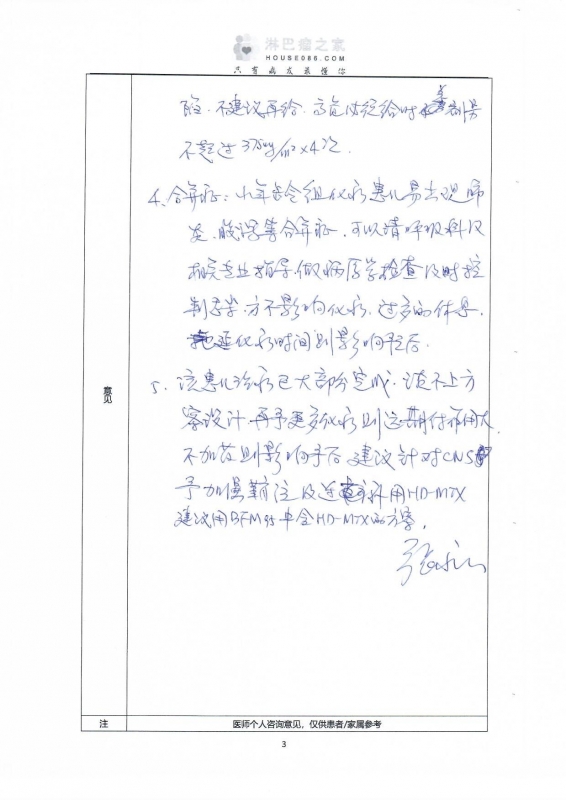 淋巴瘤之家
HOUSE086.COM
只有病友最懂你
不建议再给. 给时 剂量
不超过375mg/m²×4次.
4、合并症: 化疗患儿易出现肺
炎、 等合并症. 可以请呼吸科及
相关专业指导. 做病原学检查及时控
制 . 方不影响化疗. 过多的休息.
拖延化疗时间则影响预后.
5. 该患儿治疗已大部分完成.
案设计. 再予更多化疗则远期付作用大.
不加药则影响预后 建议针对CNS
予加强鞘注及 用HD-MTX
建议用BFM95中含HD-MTX的方案.
意见
注
医师个人咨询意见，仅供患者/家属参考
3